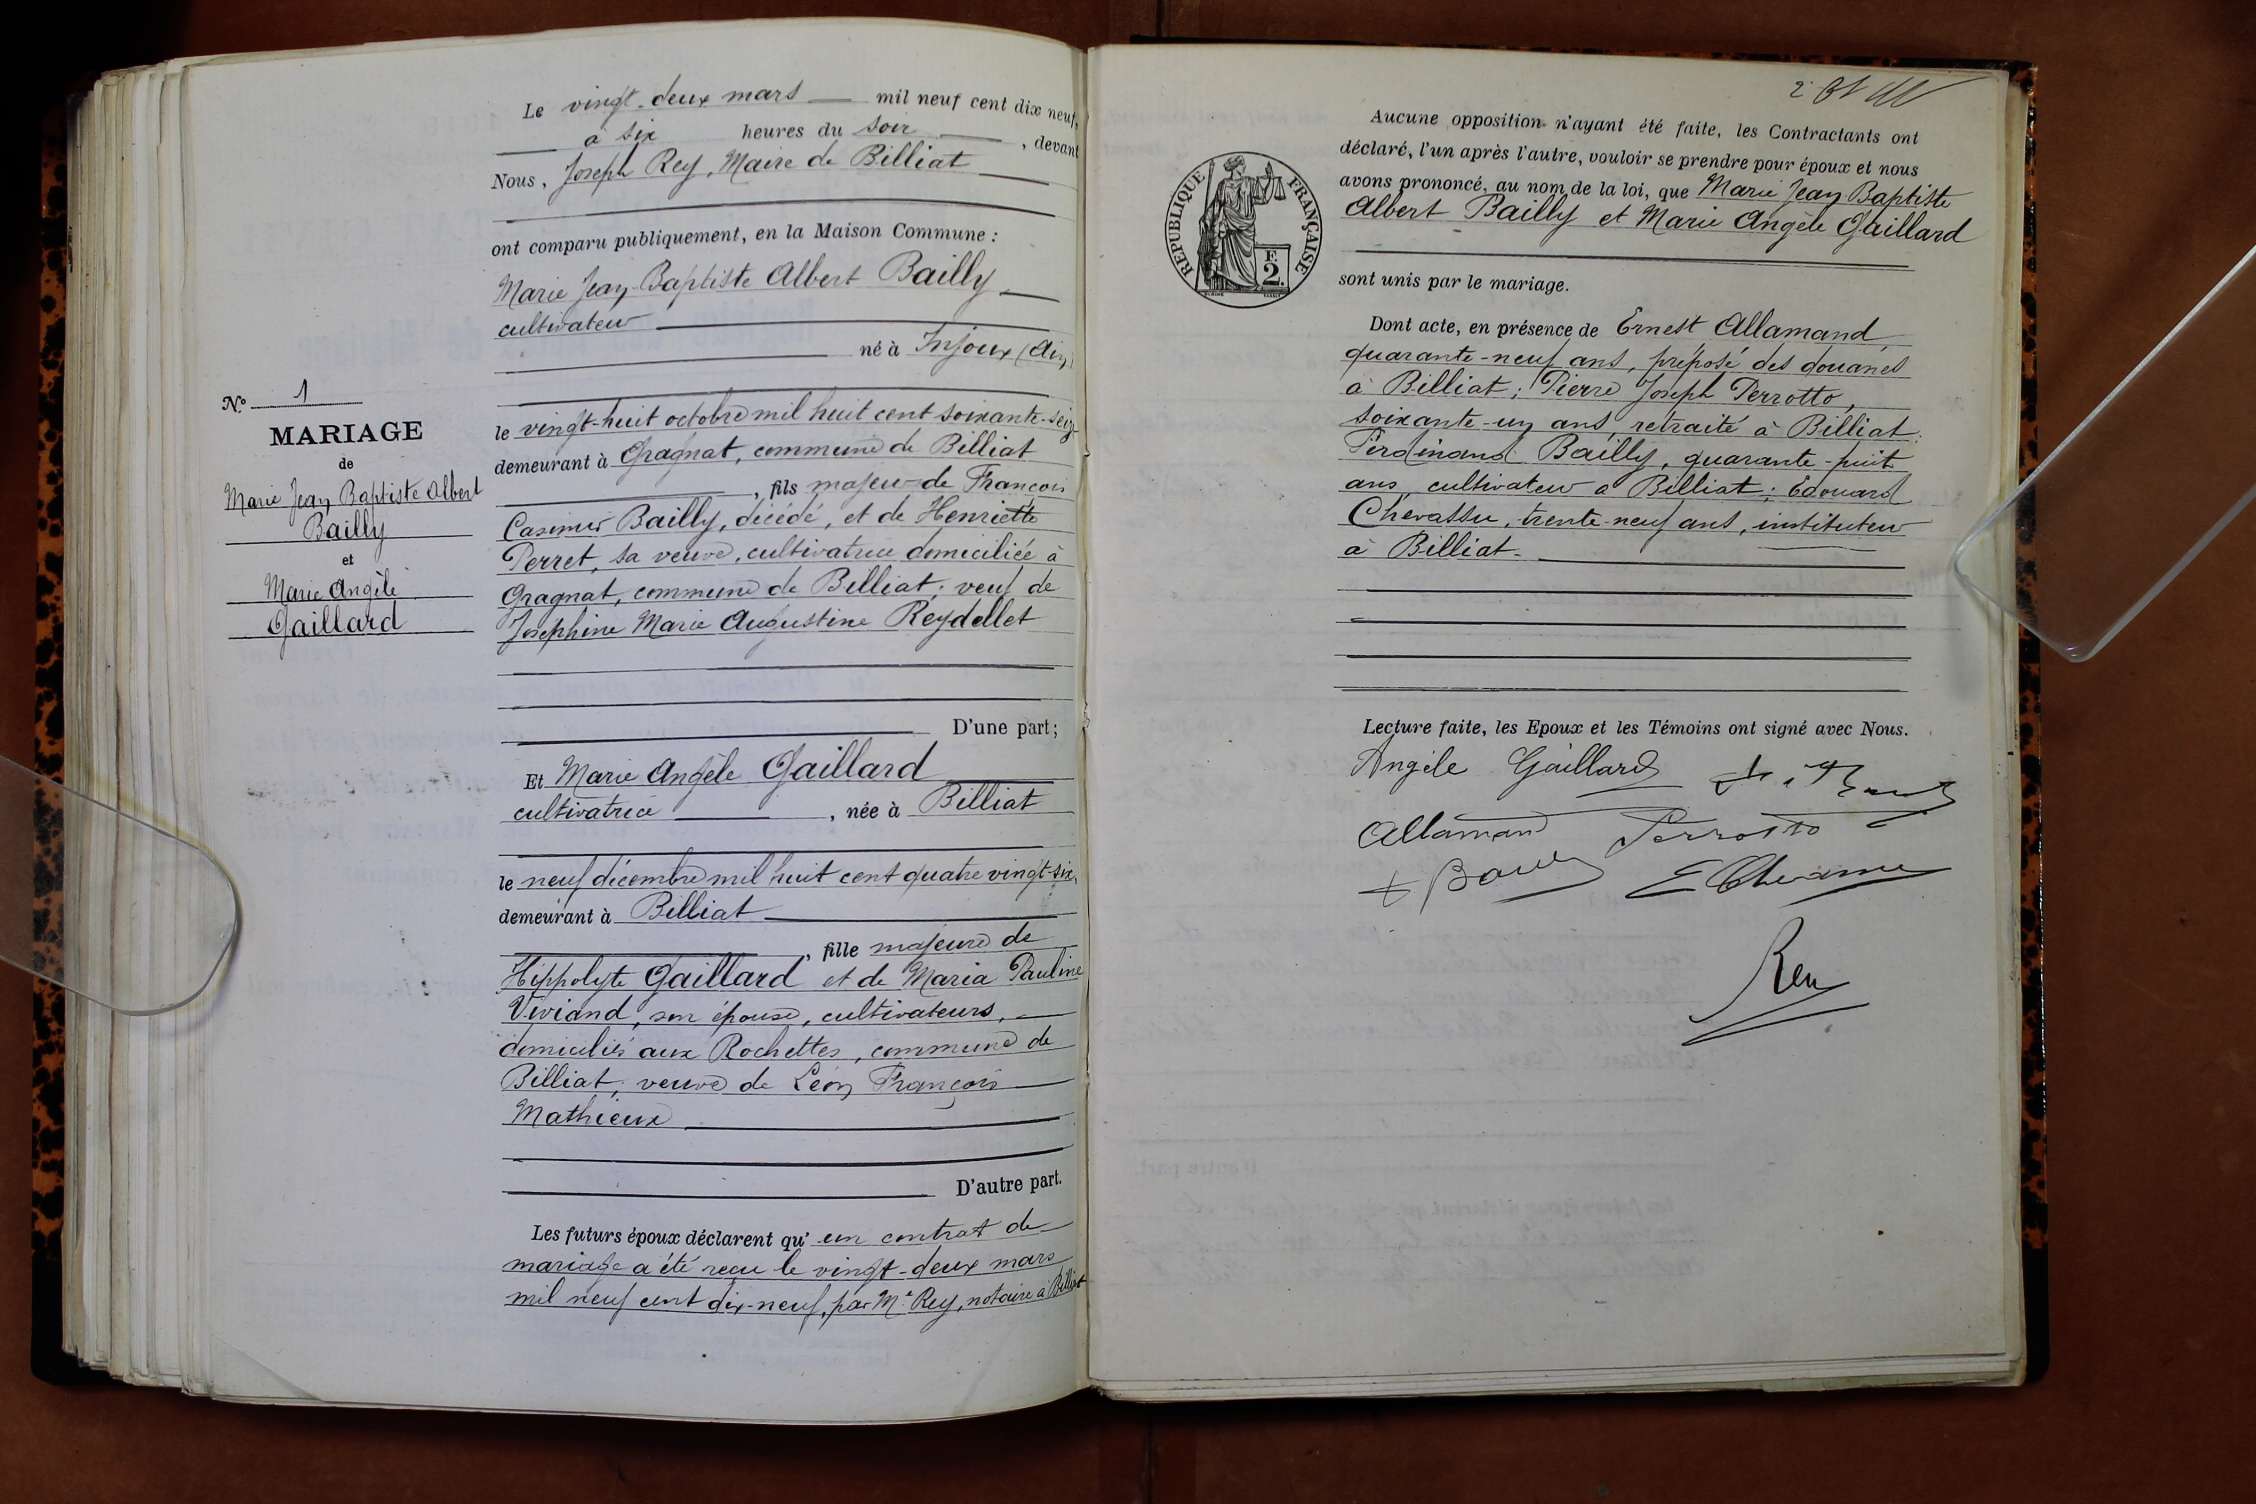 Le vingt-deux mars mil neuf cent dix neuf,
à six heures du soir, devant
Nous, Joseph Rey, Maire de Billiat
ont comparu publiquement, en la Maison Commune :
Marie Jean-Baptiste Albert Bailly
cultivateur
né à Injoux (Ain)
N.º 1
MARIAGE
de
Marie Jean Baptiste Albert
Bailly
et
Marie Angèle
Gaillard
le vingt-huit octobre mil huit cent soixante-seize
demeurant à Gragnat, commune de Billiat
, fils majeur de François
Casimir Bailly, décédé, et de Henriette
Perret, sa veuve, cultivatrice domiciliée à
Gragnat, commune de Billiat; veuf de
Josephine Marie Augustine Reydellet
D'une part;
Et Marie Angèle Gaillard
cultivatrice, née à Billiat
le neuf décembre mil huit cent quatre vingt-six,
demeurant à Billiat
, fille majeure de
Hippolyte Gaillard et de Maria Pauline
Viviand, son épouse, cultivateurs,
domiciliés aux Rochettes, commune de
Billiat; veuve de Léon François
Mathieux
D'autre part.
Les futurs époux déclarent qu' un contrat de
mariage a été reçu le vingt-deux mars
mil neuf cent dix-neuf, par Me Rey, notaire à Billiat
2
RÉPUBLIQUE FRANÇAISE
F.
2.
Aucune opposition n'ayant été faite, les Contractants ont
déclaré, l'un après l'autre, vouloir se prendre pour époux et nous
avons prononcé, au nom de la loi, que Marie Jean Baptiste
Albert Bailly et Marie Angèle Gaillard
sont unis par le mariage.
Dont acte, en présence de Ernest Allamand,
quarante-neuf ans, préposé des douanes
à Billiat; Pierre Joseph Perrotto,
soixante-un ans, retraité à Billiat;
Ferdinand Bailly, quarante-huit
ans, cultivateur à Billiat; Edouard
Chevassu, trente-neuf ans, instituteur
à Billiat.
Lecture faite, les Epoux et les Témoins ont signé avec Nous.
Angèle Gaillard
Allamand Perrotto
E Chevassu
Rey